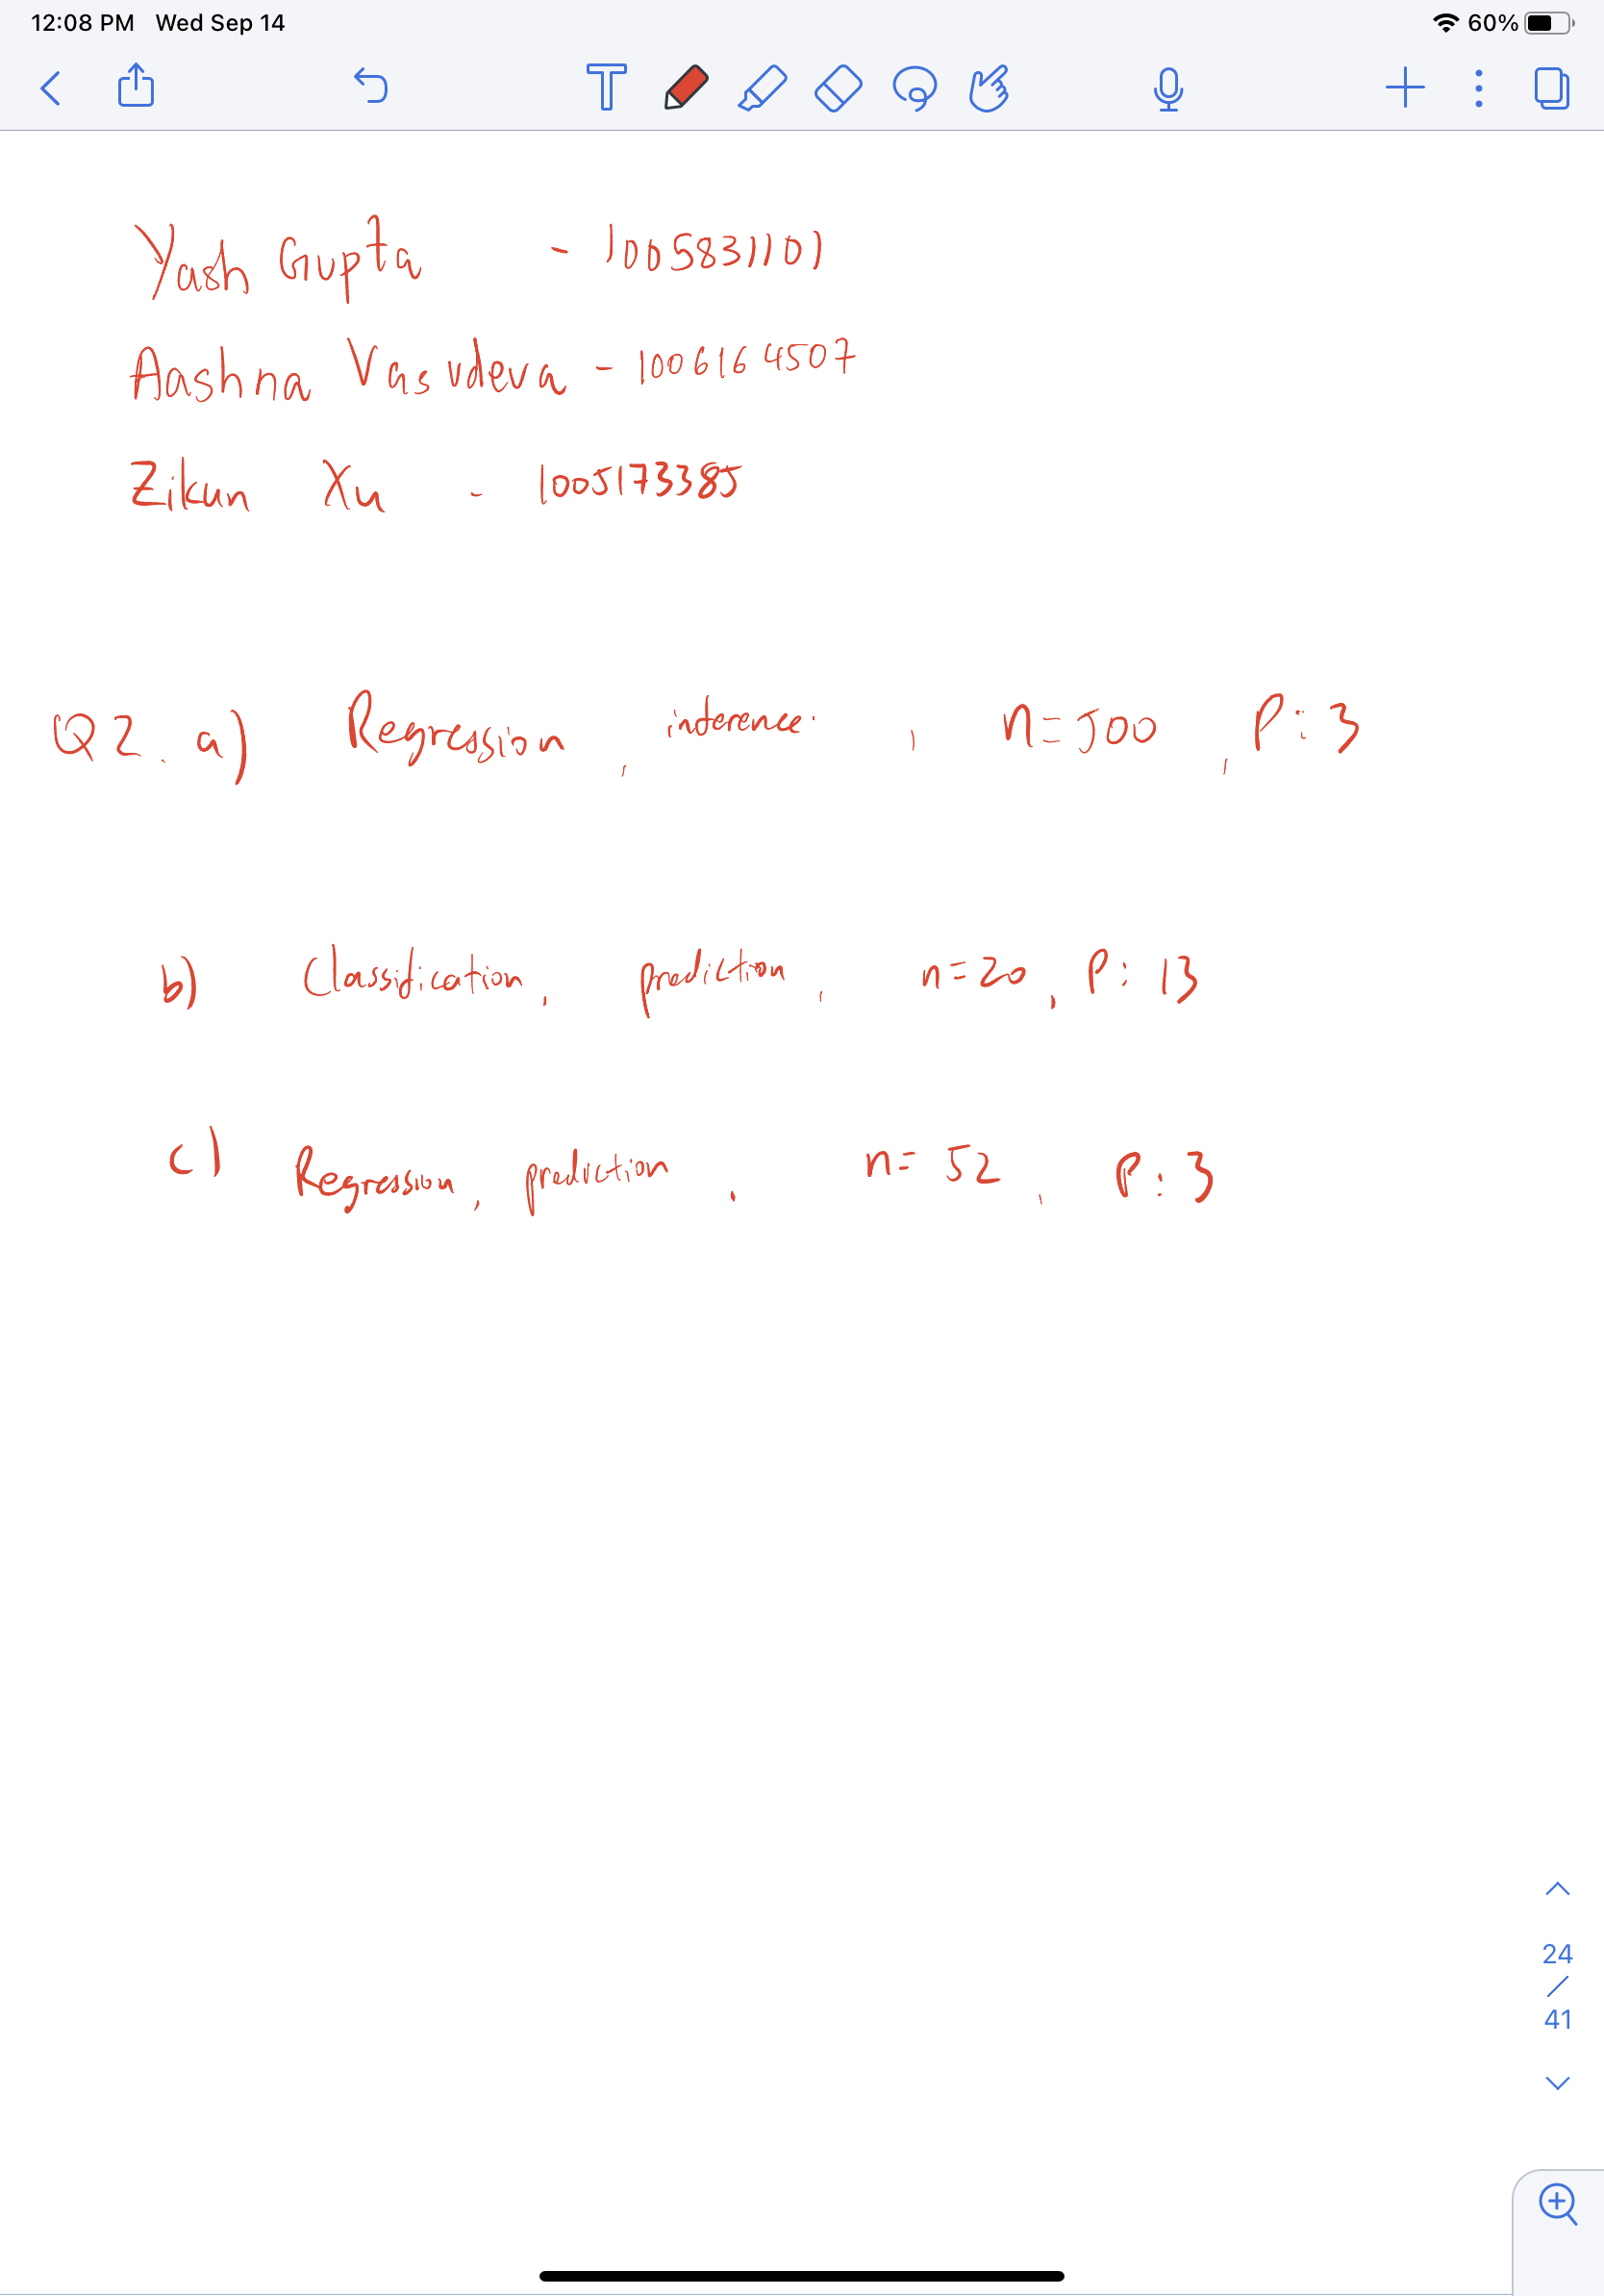 12:08 PM Wed Sep 14 60%
Yash Gupta - 1005831101
Aashna Vasudeva - 1006164507
Zikun Xu - 1005173385
Q2. a) Regression, inference. , n=500, P:3
b) Classification, prediction, n=20, P: 13
c) Regression, prediction, n= 52, P:3
24
/
41